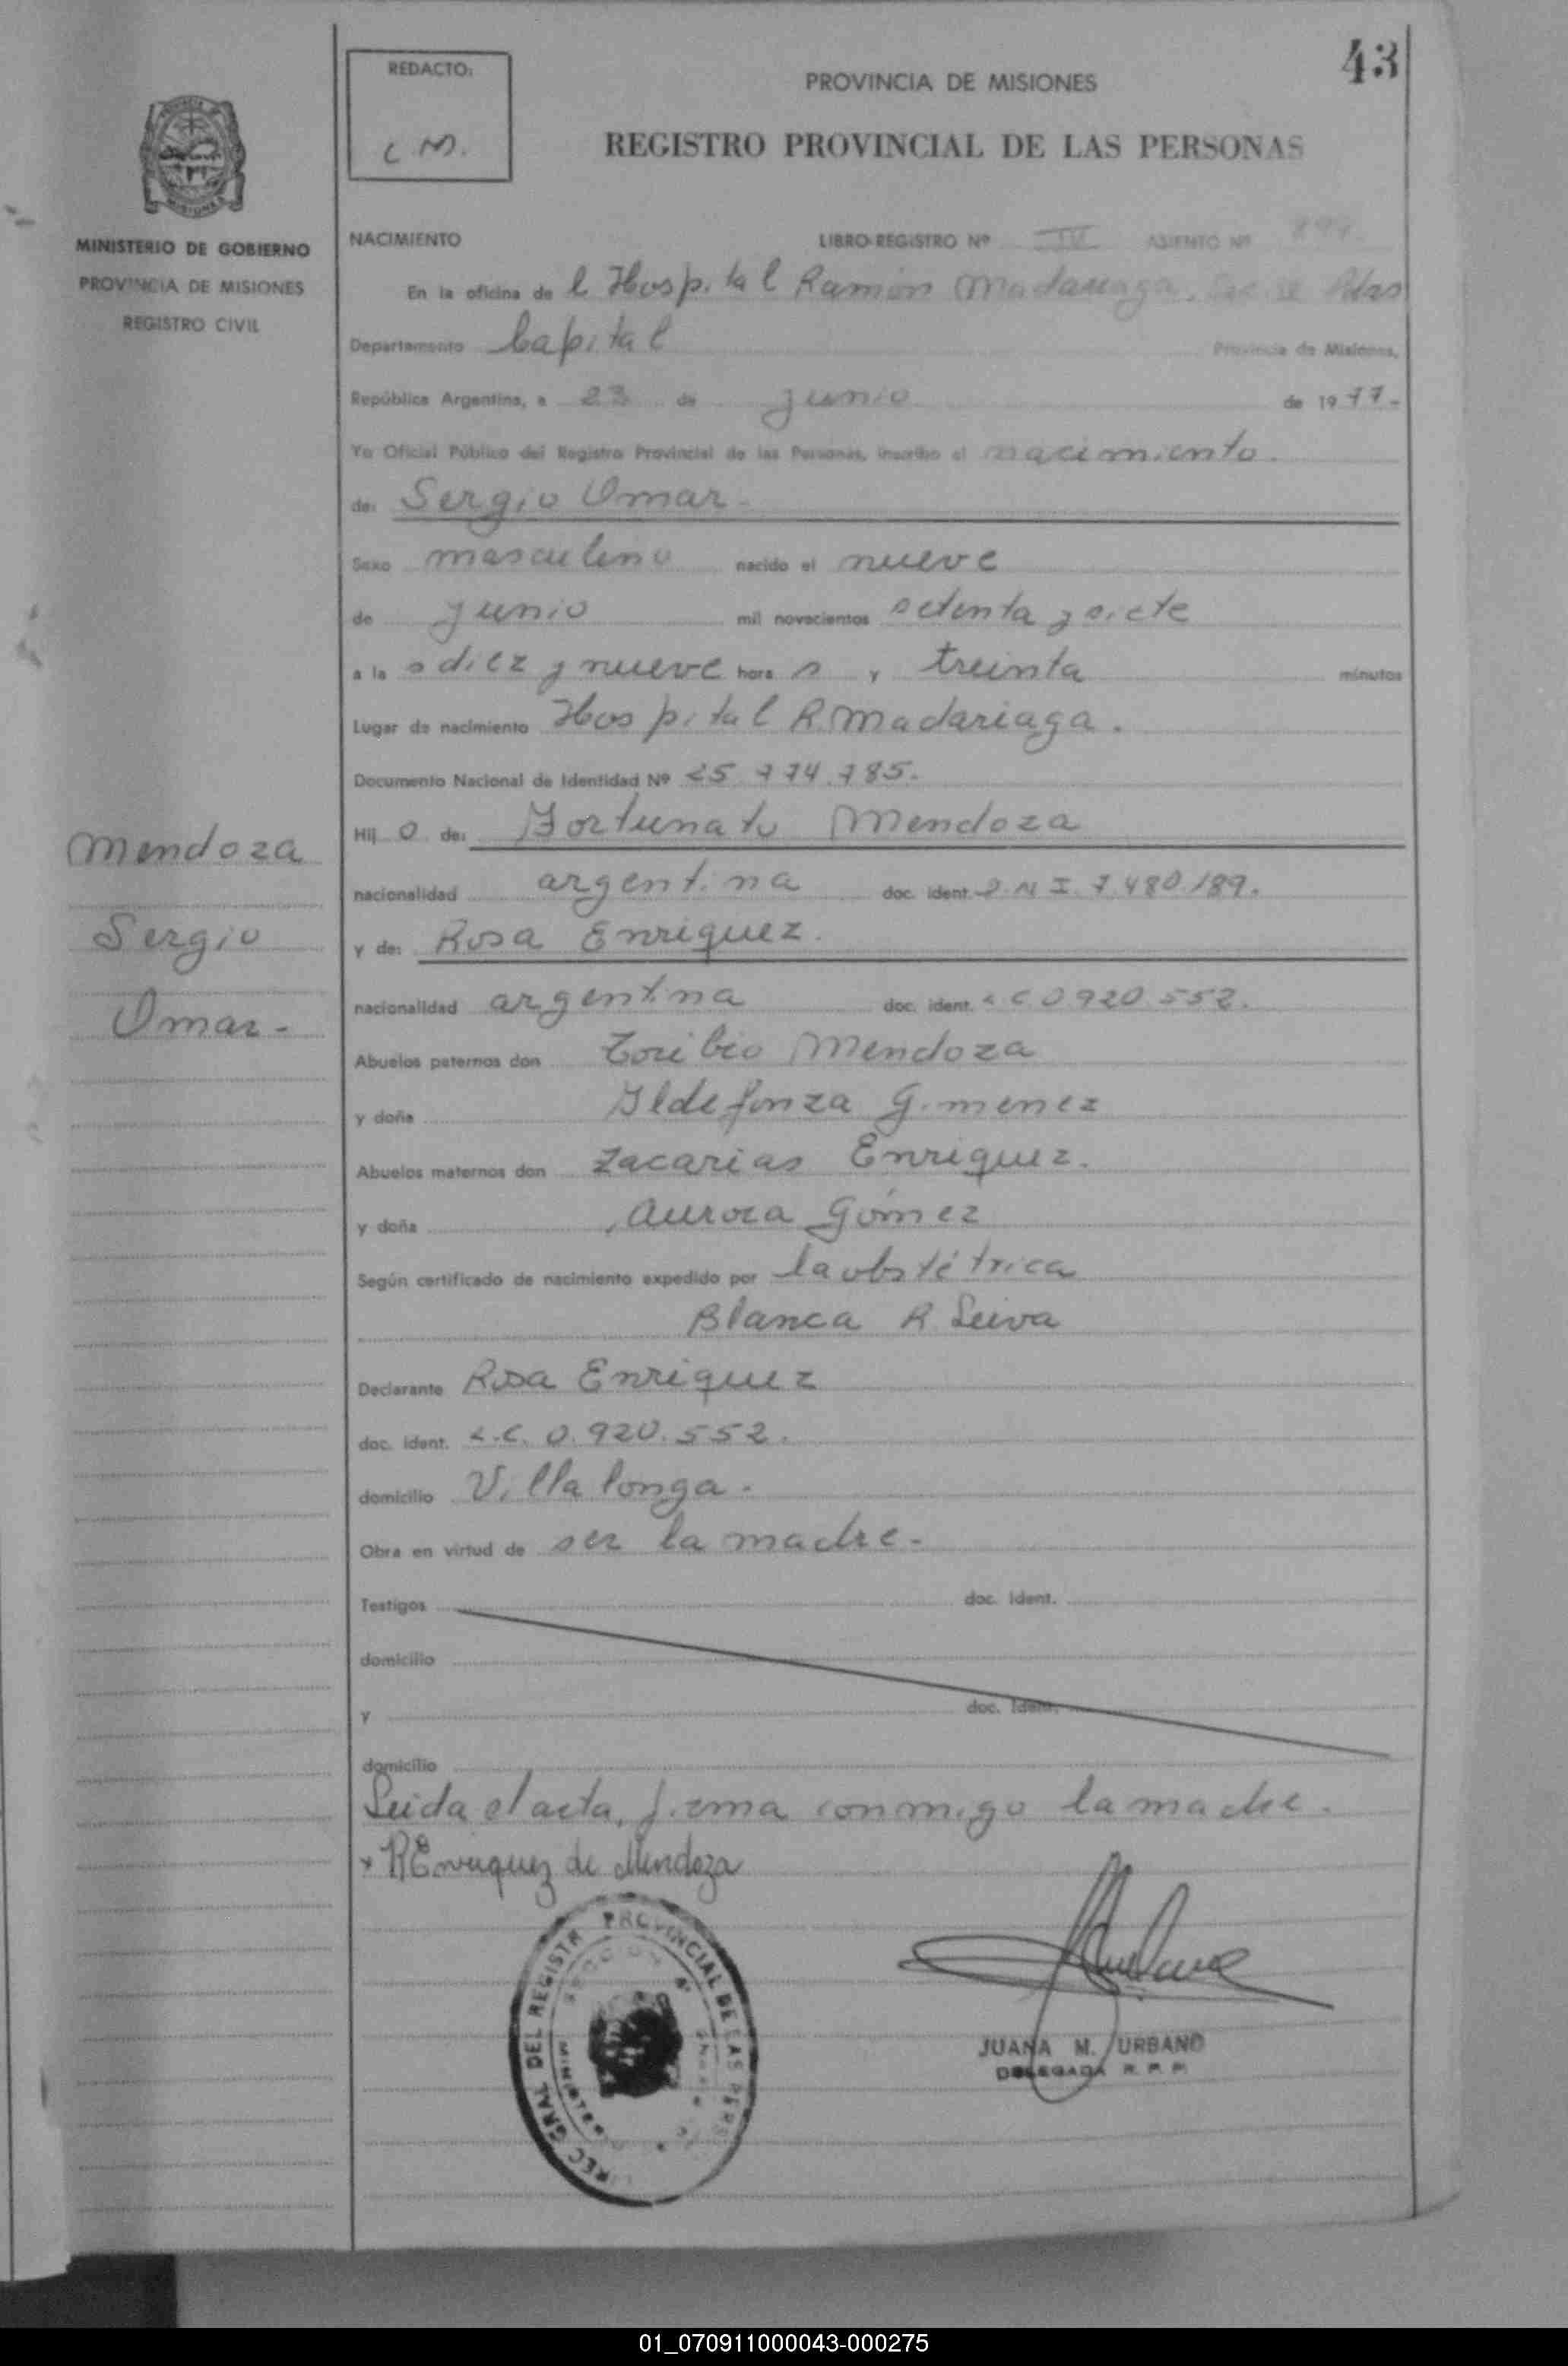 43
REDACTO:
C M.
PROVINCIA DE MISIONES
REGISTRO PROVINCIAL DE LAS PERSONAS
MISIONES
MINISTERIO DE GOBIERNO
PROVINCIA DE MISIONES
REGISTRO CIVIL
NACIMIENTO LIBRO-REGISTRO Nº IV ASIENTO Nº
En la oficina de l Hospital Ramón Madariaga,
Departamento Capital Provincia de Misiones,
República Argentina, a 23 de junio de 1977-
Yo Oficial Público del Registro Provincial de las Personas, inscribo el nacimiento.
de: Sergio Omar-
Sexo masculino nacido el nueve
de junio mil novecientos setenta y siete
a la s diez y nueve hora s y treinta minutos
Lugar de nacimiento Hospital R. Madariaga.
Documento Nacional de Identidad Nº 25.774.785.
Hij o de: Fortunato Mendoza
nacionalidad argentina doc. ident. D.N.I. 7.480.189.
y de: Rosa Enriquez.
nacionalidad argentina doc. ident. L.C. 0.920.552.
Abuelos paternos don Toribio Mendoza
y doña Ildefonza Gimenez
Abuelos maternos don Zacarias Enriquez.
y doña Aurora Gómez
Según certificado de nacimiento expedido por la obstétrica
Blanca R. Leiva
Declarante Rosa Enriquez
doc. ident. L.C. 0.920.552.
domicilio Villa longa.
Obra en virtud de ser la madre-
Testigos doc. ident.
domicilio
y doc. ident.
domicilio
Leida el acta, firma conmigo la madre.
x REnriquez de Mendoza
Mendoza
Sergio
Omar-
GRAL DEL REGISTR PROVINCIAL DE LAS PERS
JUANA M. URBANO
DELEGADA R. P. P.
01_070911000043-000275